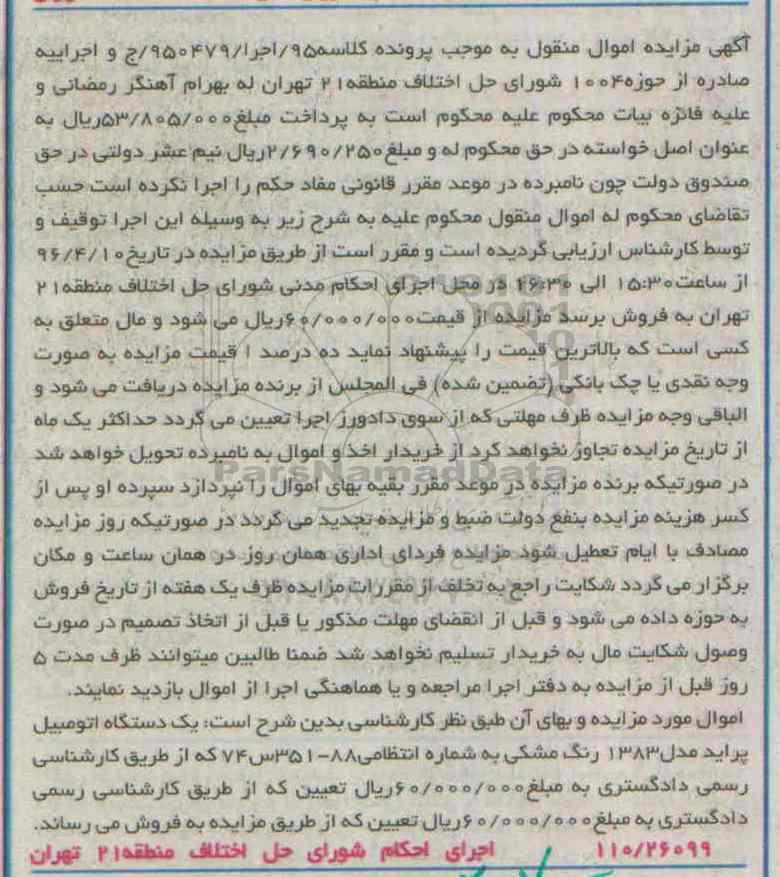 آگهی مزایده اموال منقول به موجب پرونده کلاسه۹۵/اجرا/۹۵۰۴۷۹/ج و اجراییه
صادره از حوزه۱۰۰۴ شورای حل اختلاف منطقه۲۱ تهران له بهرام آهنگر رمضانی و
علیه فائزه بیات محکوم علیه محکوم است به پرداخت مبلغ۵۳/۸۰۵/۰۰۰ریال به
عنوان اصل خواسته در حق محکوم له و مبلغ۲/۶۹۰/۲۵۰ریال نیم عشر دولتی در حق
صندوق دولت چون نامبرده در موعد مقرر قانونی مفاد حکم را اجرا نکرده است حسب
تقاضای محکوم له اموال منقول محکوم علیه به شرح زیر به وسیله این اجرا توقیف و
توسط کارشناس ارزیابی گردیده است و مقرر است از طریق مزایده در تاریخ۹۶/۴/۱۰
از ساعت۱۵:۳۰ الی ۱۶:۳۰ در محل اجرای احکام مدنی شورای حل اختلاف منطقه۲۱
تهران به فروش برسد مزایده از قیمت۶۰/۰۰۰/۰۰۰ریال می شود و مال متعلق به
کسی است که بالاترین قیمت را پیشنهاد نماید ده درصد ا قیمت مزایده به صورت
وجه نقدی یا چک بانکی (تضمین شده) فی المجلس از برنده مزایده دریافت می شود و
الباقی وجه مزایده ظرف مهلتی که از سوی دادورز اجرا تعیین می گردد حداکثر یک ماه
از تاریخ مزایده تجاوز نخواهد کرد از خریدار اخذ و اموال به نامبرده تحویل خواهد شد
ParsNamadData
در صورتیکه برنده مزایده در موعد مقرر بقیه بهای اموال را نپردازد سپرده او پس از
کسر هزینه مزایده بنفع دولت ضبط و مزایده تجدید می گردد در صورتیکه روز مزایده
مصادف با ایام تعطیل شود مزایده فردای اداری همان روز در همان ساعت و مکان
برگزار می گردد شکایت راجع به تخلف از مقررات مزایده ظرف یک هفته از تاریخ فروش
به حوزه داده می شود و قبل از انقضای مهلت مذکور یا قبل از اتخاذ تصمیم در صورت
وصول شکایت مال به خریدار تسلیم نخواهد شد ضمنا طالبین میتوانند ظرف مدت ۵
روز قبل از مزایده به دفتر اجرا مراجعه و یا هماهنگی اجرا از اموال بازدید نمایند.
اموال مورد مزایده و بهای آن طبق نظر کارشناسی بدین شرح است: یک دستگاه اتومبیل
پراید مدل۱۳۸۳ رنگ مشکی به شماره انتظامی۸۸-۳۵۱س۷۴ که از طریق کارشناسی
رسمی دادگستری به مبلغ۶۰/۰۰۰/۰۰۰ریال تعیین که از طریق کارشناسی رسمی
دادگستری به مبلغ۶۰/۰۰۰/۰۰۰ریال تعیین که از طریق مزایده به فروش می رساند.
۱۱۰/۲۶۰۹۹ اجرای احکام شورای حل اختلاف منطقه۲۱ تهران